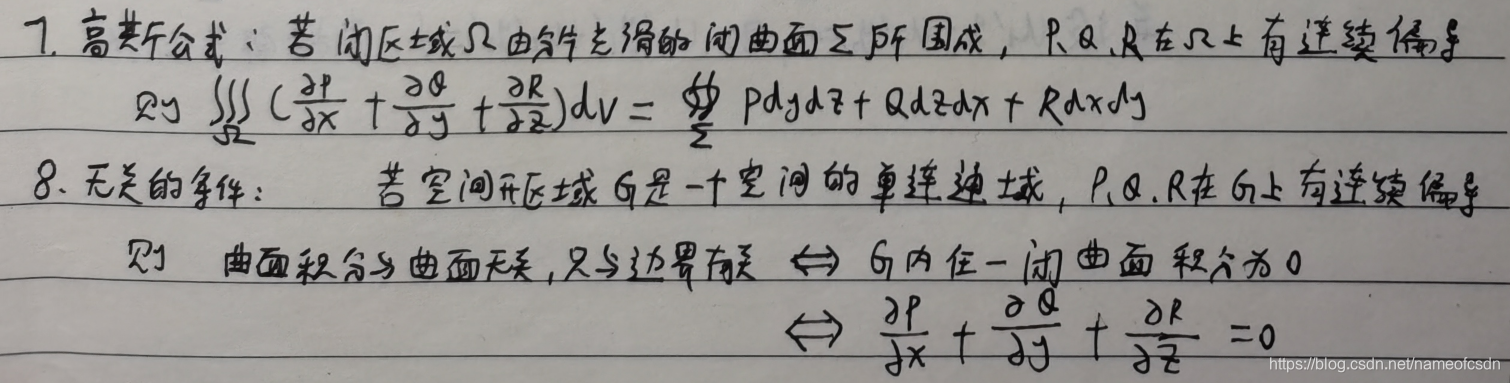 7. 高斯公式:若闭区域Ω由分片光滑的闭曲面Σ所围成, P.Q.R在Ω上有连续偏导
则 ∭_Ω (∂P/∂x + ∂Q/∂y + ∂R/∂z)dV = ∯_Σ Pdydz + Qdzdx + Rdxdy
8. 无关的条件: 若空间开区域G是一个空间的单连通域, P.Q.R在G上有连续偏导
则 曲面积分与曲面无关,只与边界有关 ⇔ G内任一闭曲面积分为0
⇔ ∂P/∂x + ∂Q/∂y + ∂R/∂z = 0
https://blog.csdn.net/nameofcsdn